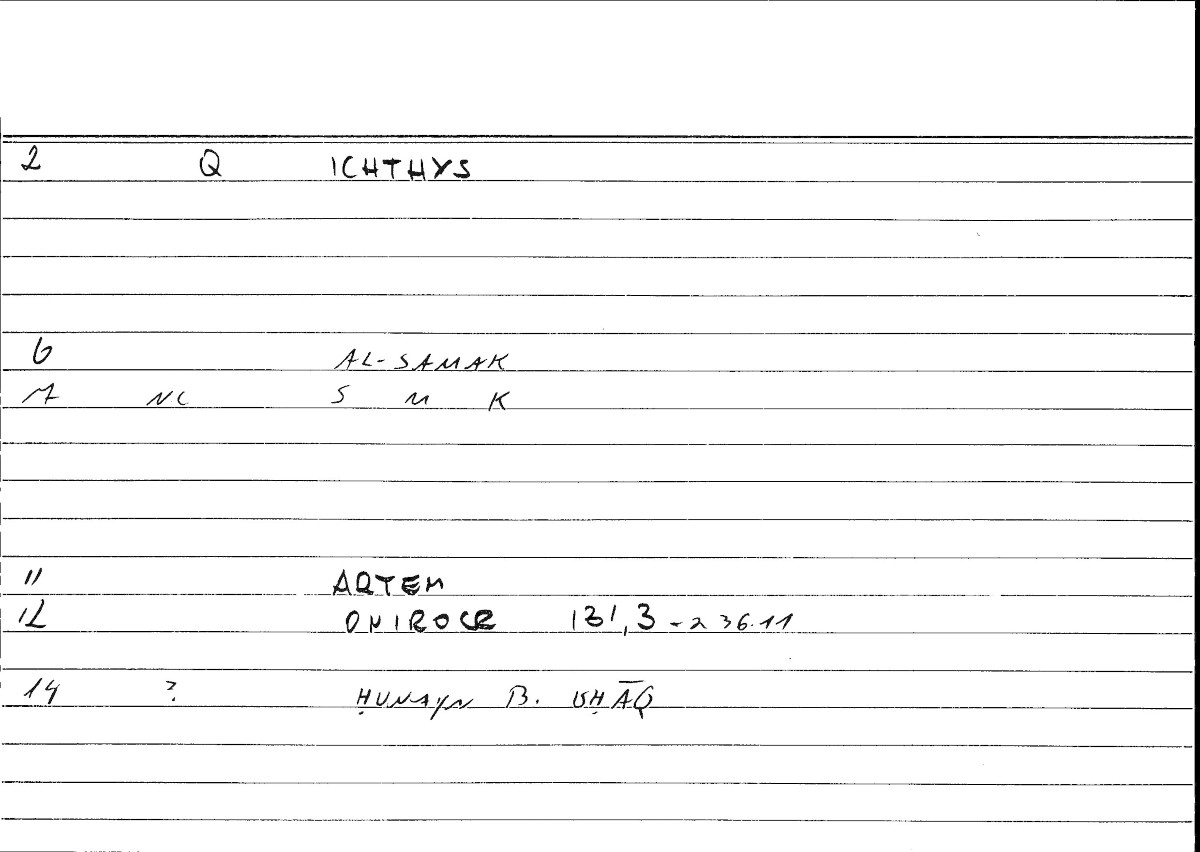 2 Q ICHTHYS
6 AL-SAMAK
7 NC S M K
11 ARTEM
12 ONIROCR 131,3 - 236.11
14 ? ḤUNAYN B. ISḤĀQ